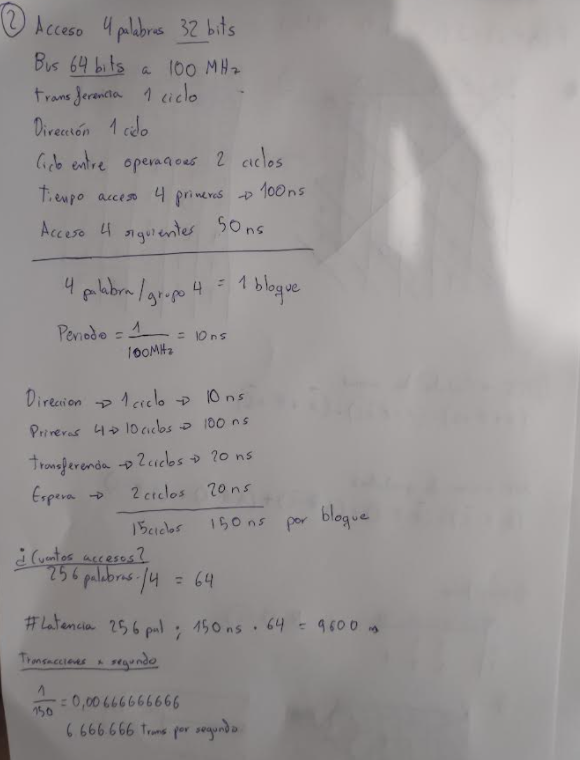 2 Acceso 4 palabras 32 bits
Bus 64 bits a 100 MHz
transferencia 1 ciclo
Dirección 1 ciclo
Ciclo entre operaciones 2 ciclos
tiempo acceso 4 primeras → 100ns
Acceso 4 siguientes 50ns
4 palabra/grupo 4 = 1 bloque
Periodo = 1/100MHz = 10ns
Direcion → 1 ciclo → 10 ns
Primeras 4 → 10 ciclos → 100 ns
Transferencia → 2 ciclos → 20 ns
Espera → 2 ciclos 20 ns
15 ciclos 150 ns por bloque
¿Cuantos accesos?
256 palabras/4 = 64
#Latencia 256 pal; 150 ns · 64 = 9600 ns
Transacciones x segundo
1/150 = 0,00666666666
6 666.666 trans por segundo